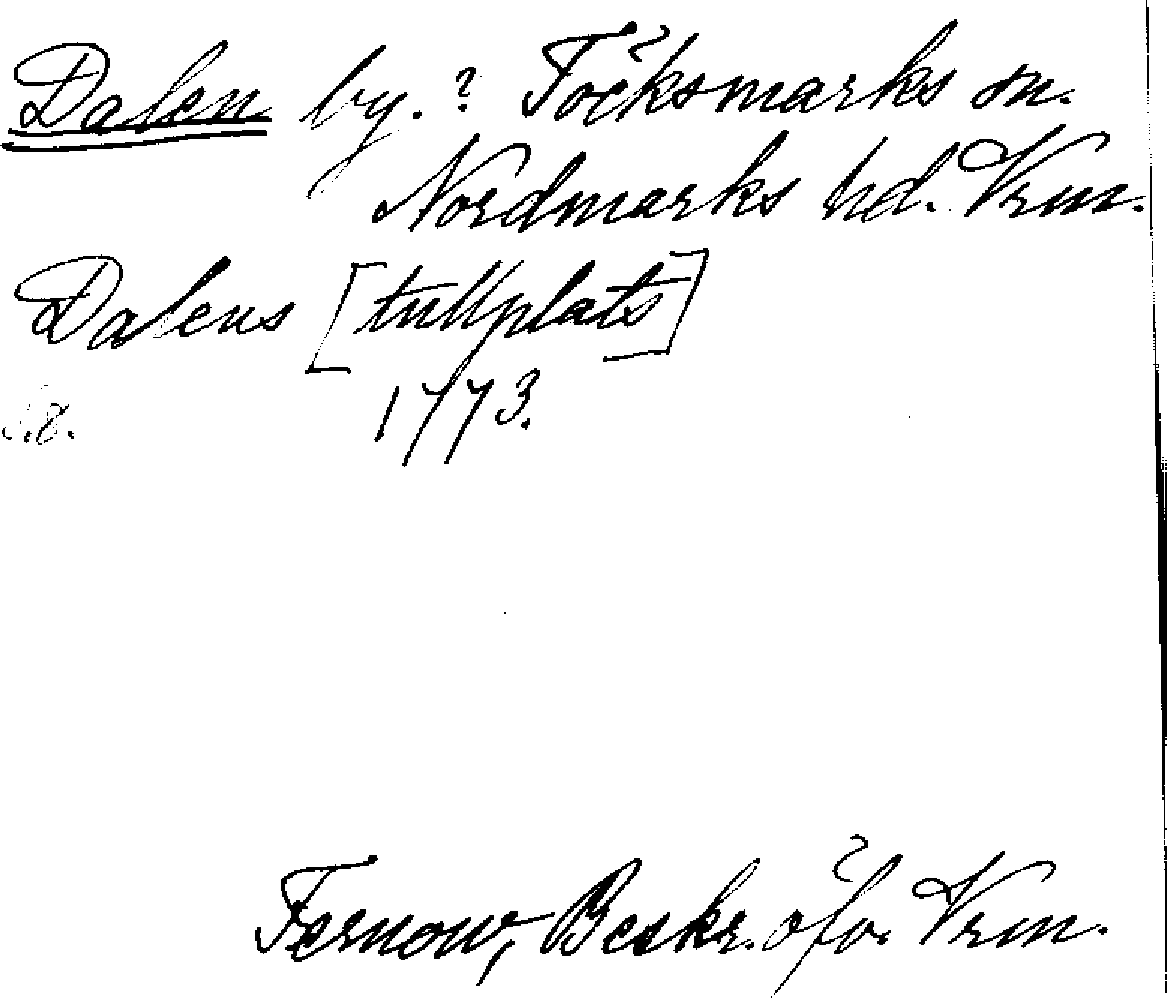 Dalen by. ? Töcksmarks sn.
Nordmarks hd. Vrm.
Dalens [tullplats]
1773.
Fernow, Beskr. öfv. Vrm.